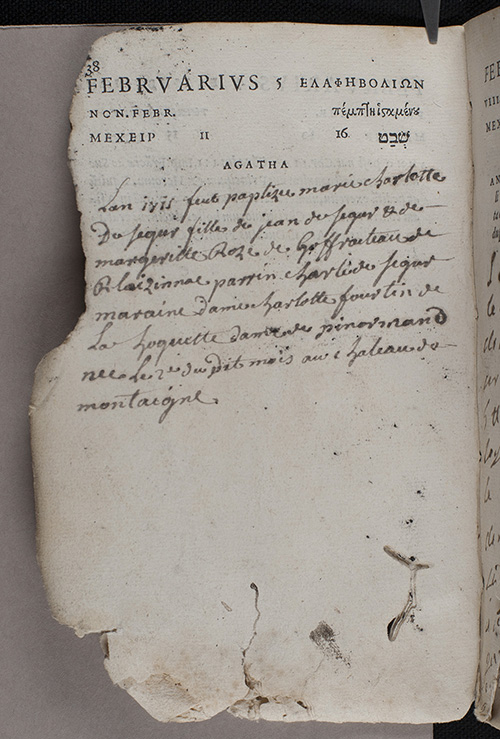 38
FEBRVARIVS 5 ΕΛΑΦΗΒΟΛΙΩΝ
NON. FEBR. πέμπτη ἱσαμένου
ΜΕΧΕΙΡ 11 16 שבט
AGATHA
Lan 1715 feut paptizee marie charlotte
De segur fille de jean de segur & de
margeritte Roze de
parrin charle de segur
maraine dame charlotte fourtin de
La hoguette dame de pinormand
nee Le 2e du dit mois au chateau de
montaigne